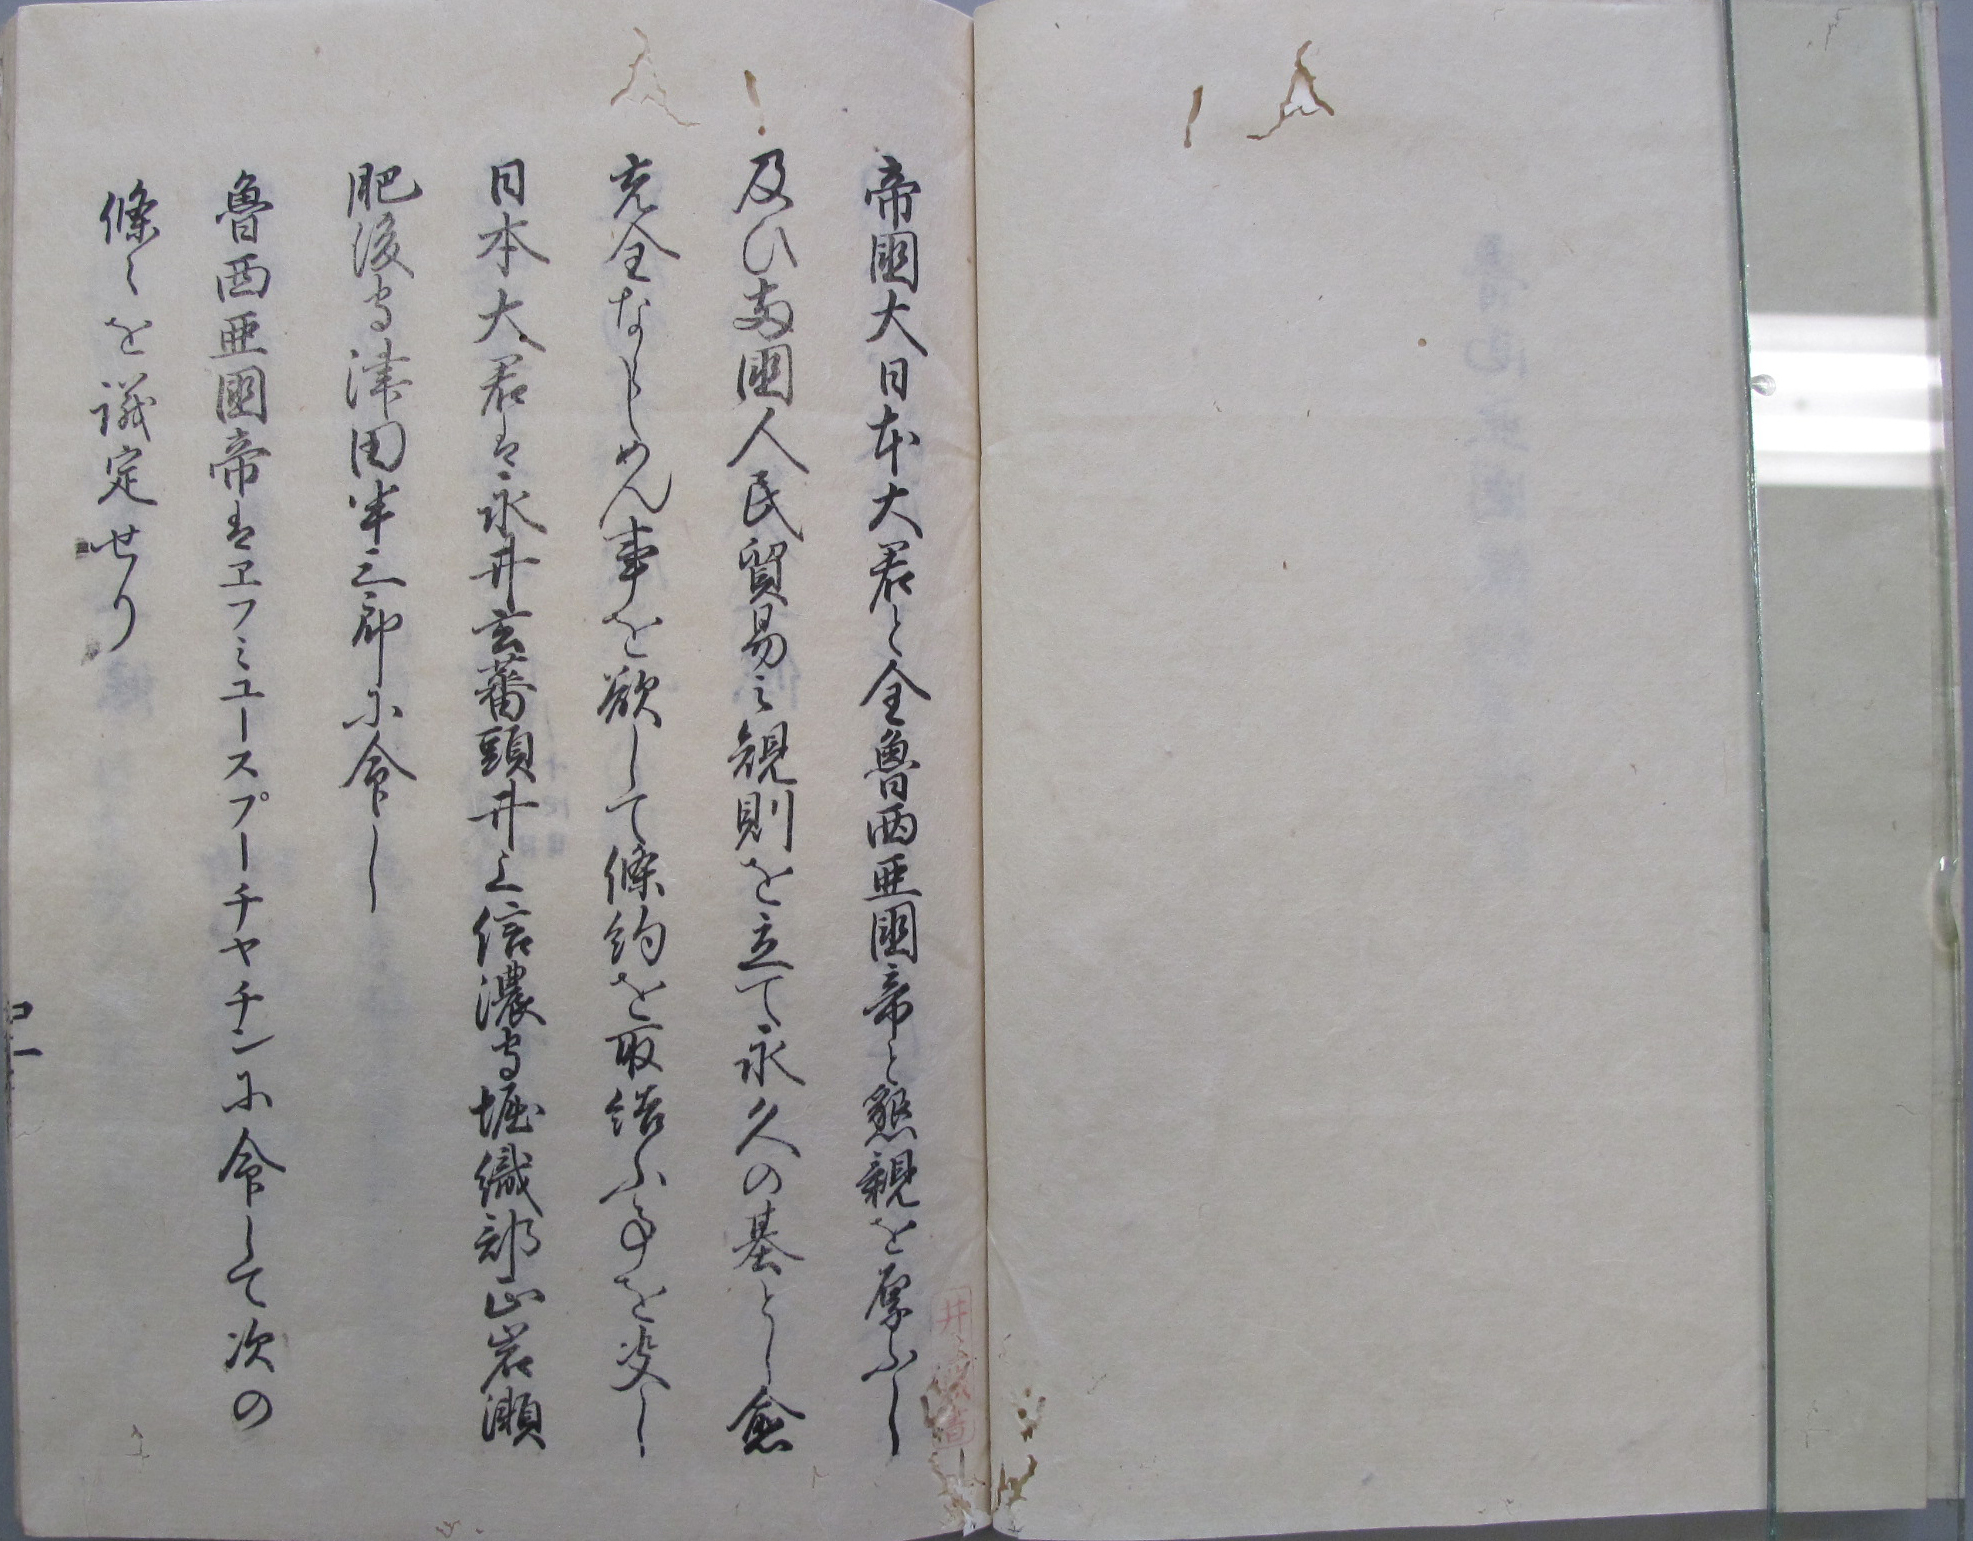 帝國大日本大君と全魯西亜國帝と懇親を厚ふし
及ひ両國人民貿易之規則を立て永久の基とし愈
充全ならしめん事を欲して條約を取結ふ事を決し
日本大君ハ永井玄蕃頭井上信濃守堀織部正岩瀬
肥後守津田半三郎に命し
魯西亜國帝ハヱフミユースプーチヤチンに命して次の
條々を議定せり